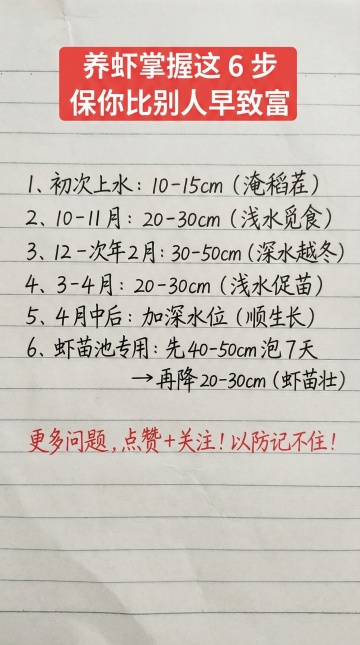 养虾掌握这 6 步
保你比别人早致富
1、初次上水：10-15cm（淹稻茬）
2、10-11月：20-30cm（浅水觅食）
3、12-次年2月：30-50cm（深水越冬）
4、3-4月：20-30cm（浅水促苗）
5、4月中后：加深水位（顺生长）
6、虾苗池专用：先40-50cm泡7天
→再降20-30cm（虾苗壮）
更多问题，点赞+关注！以防记不住！